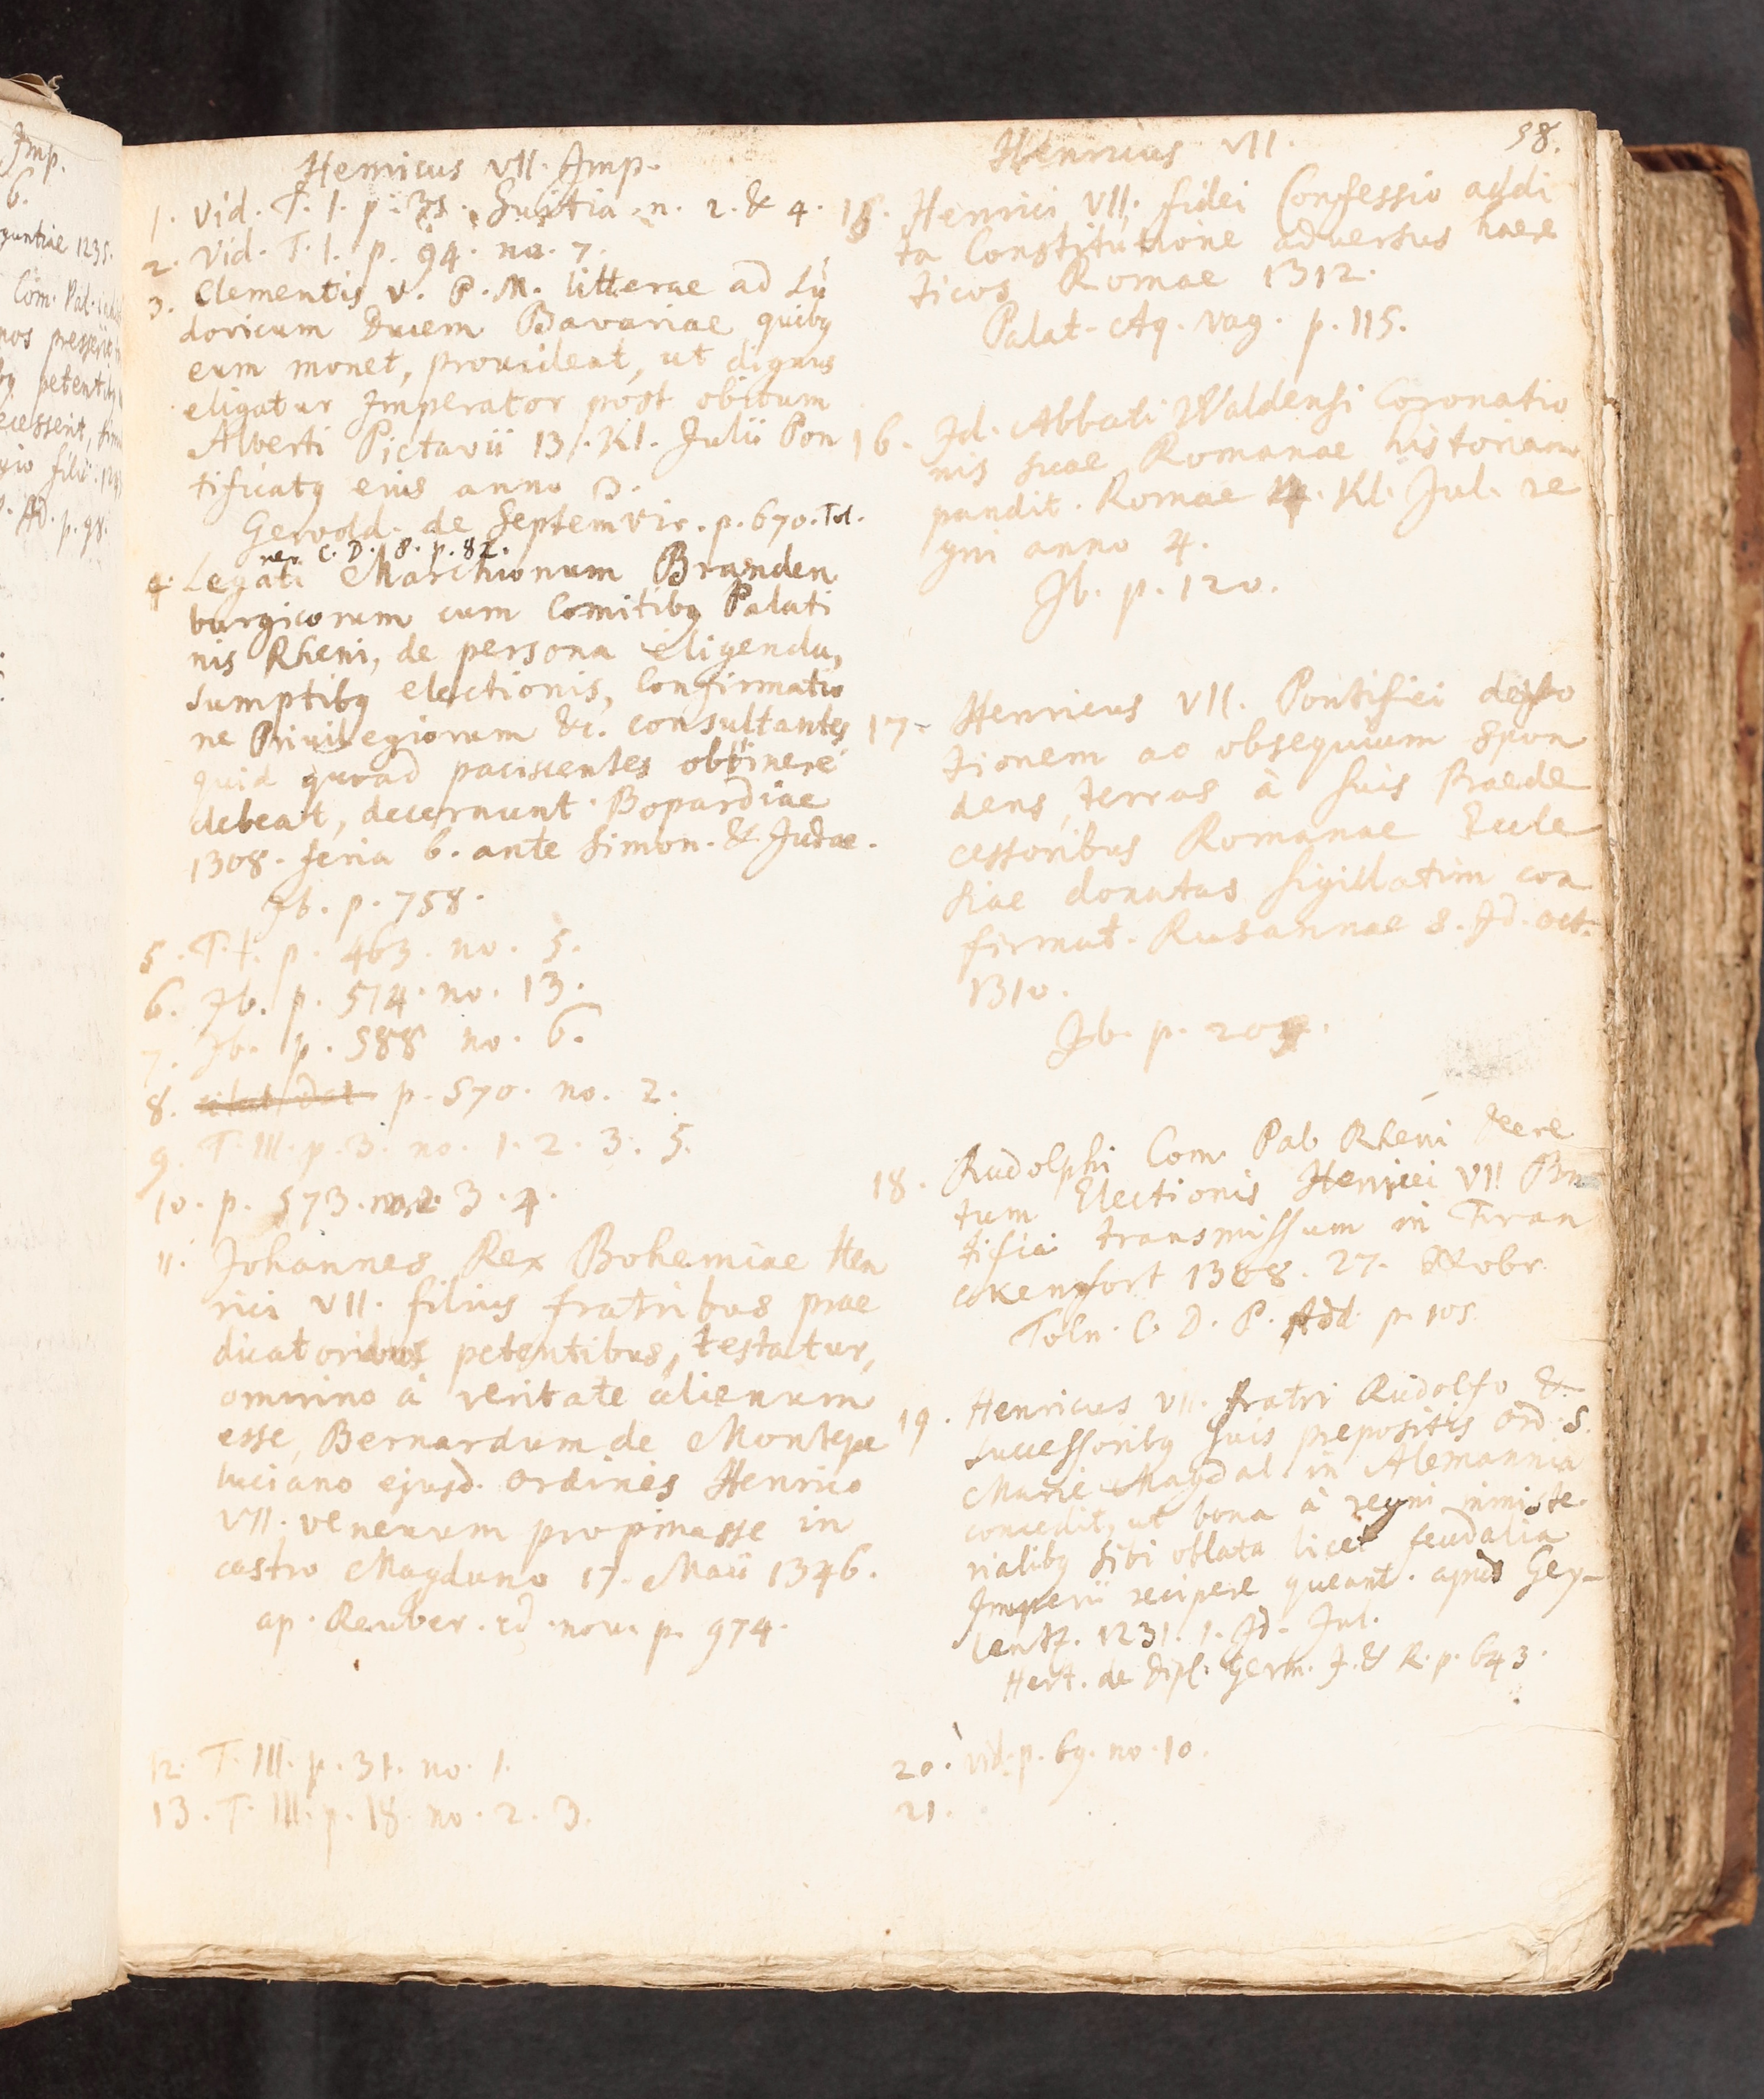 Henricus VII. Imp.
1. Vid. T. I. p. 35. Suitia n. 2. & 4.
2. Vid. T. I. p. 94. no. 7.
3. Clementis V. P. M. litterae ad Lu
dovicum Ducem Bavariae quibq
eum monet, provideat, ut dignus
eligatur Imperator post obitum
Alberti Pictavii 13. Kl. Julii Pon
tificatq eius anno 3.
Gewold. de Septemvir. p. 670. Tol.
ner C. D. 8. p. 82.
4. Legati Marchionum Branden
burgicorum cum Comitibq Palati
nis Rheni, de persona eligenda,
sumptibq electionis, Confirmatio
ne Privilegiorum &c. consultantes
quid quoad paciscentes obtinere
debeat, decernunt. Bopardiae
1308. feria 6. ante Simon. & Judae.
Ib. p. 758.
5. T. I. p. 463. no. 5.
6. Ib. p. 514. no. 13.
7. Ib. p. 588 no. 6.
8. p. 570. no. 2.
9. T. III. p. 3. no. 1. 2. 3. 5.
10. p. 573. no. 2. 3. 4.
11. Johannes Rex Bohemiae Hen
rici VII. filius fratribus prae
dicatoribus petentibus, testatur,
omnino à veritate alienum
esse, Bernardum de Montepe
luciano ejusd. Ordinis Henrico
VII. venenum propinasse in
castro Magduno 17. Maii 1346.
ap. Reuber. ed. nov. p. 974.
12. T. III. p. 31. no. 1.
13. T. III. p. 18. no. 2. 3.
Henricus VII.
58.
15. Henrici VII. fidei Confessio addi
ta Constitutione adversus haere
ticos Romae 1312.
Palat. Aq. vag. p. 115.
16. Id. Abbati Waldensi Coronatio
nis suae Romanae historiam
pandit. Romae Kl. Jul. re
gni anno 4.
Ib. p. 120.
17. Henricus VII. Pontifici devo
tionem ac obsequium spon
dens, terras à suis Praede
cessoribus Romanae Eccle
siae donatas sigillatim con
firmat. Rusannae 8. Id. Oct.
1310.
Ib. p. 209.
18. Rudolphi Com. Pal. Rheni Decre
tum Electionis Henrici VII
tifici transmissum in Fran
ckenfort 1308. 27. Novbr.
Toln. C. D. P. Add. p. 105.
19. Henricus VII. fratri Rudolfo &
successoribq suis prepositis Ord. S.
Marie Magdal. in Alemannia
concedit, ut bona à regni ministe
rialibq sibi oblata licet feudalia
Imperii recipere queant. apud Gey-
lentz. 1231. 1. Id. Jul.
Hert. de Dipl. Germ. I. & R. p. 643.
20. vid. p. 69. no. 10.
21.